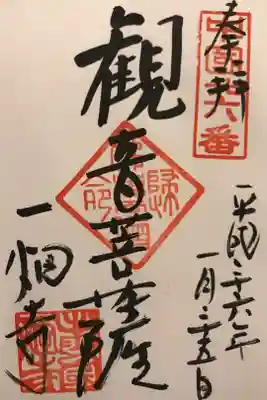 奉拝
中国廿六番
平成二十六年
一月二十五日
観音菩薩
一畑寺